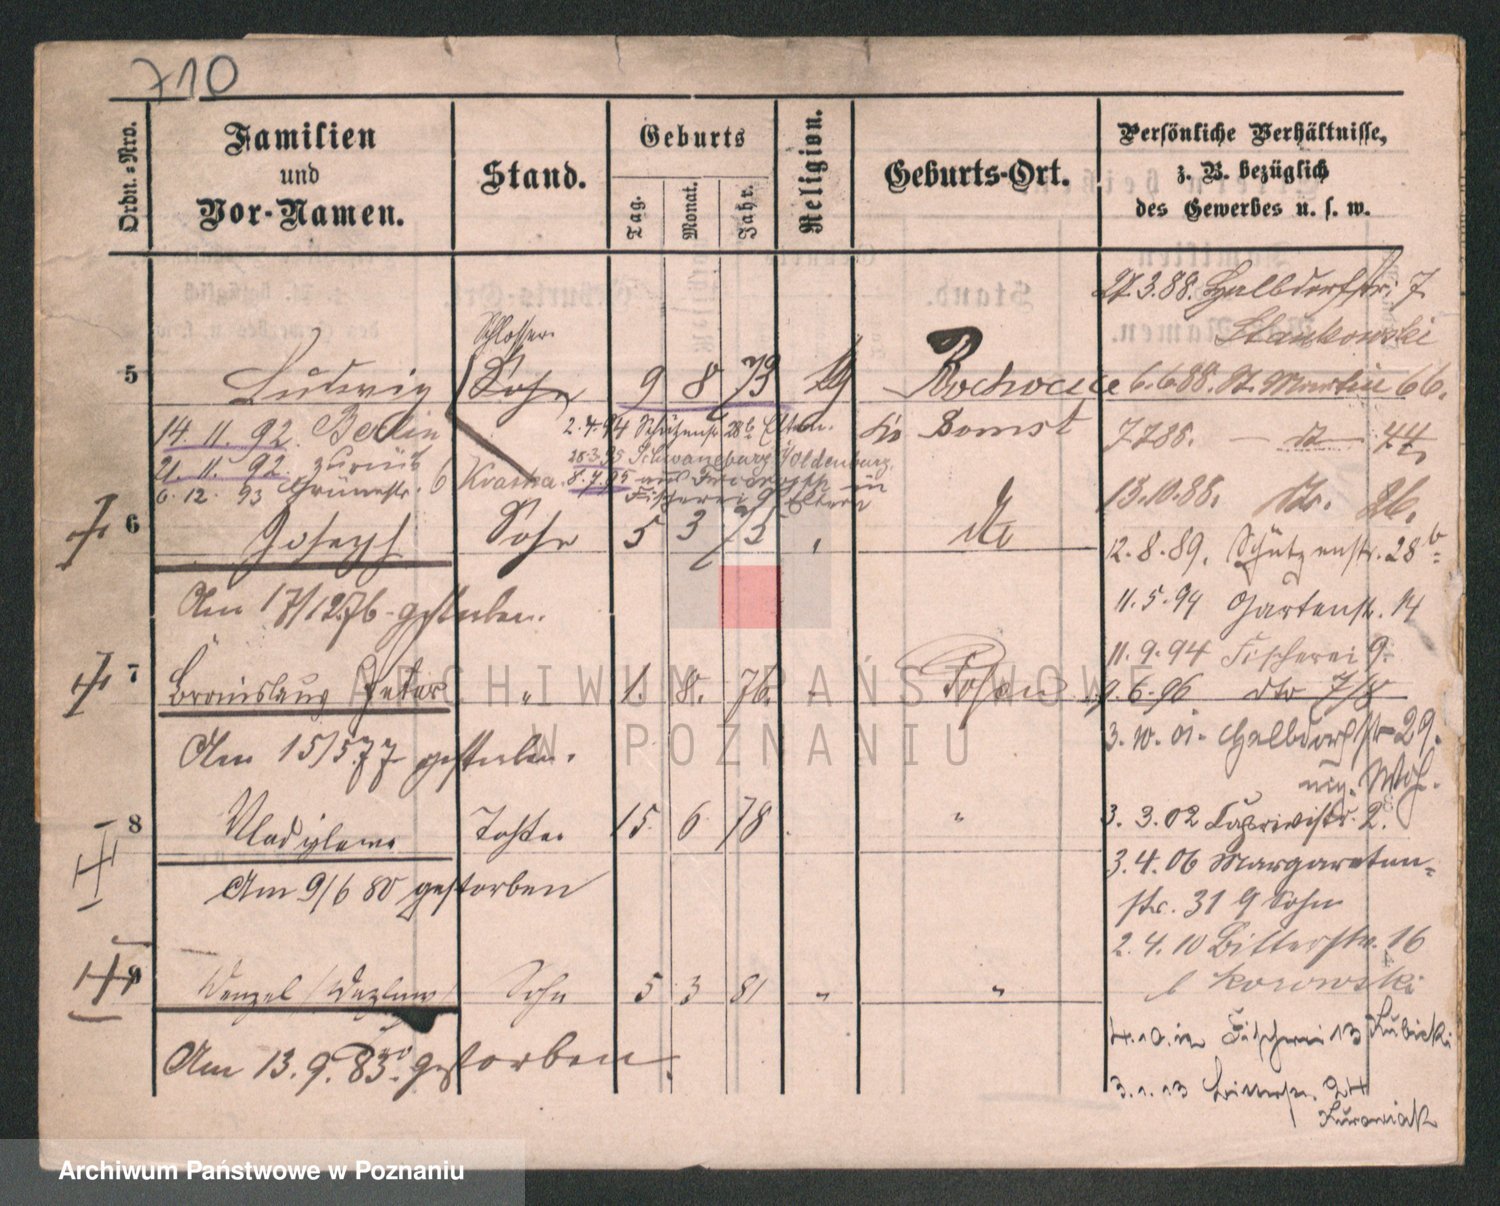 710
Ordn.-Nro.
Familien
und
Vor-Namen.
Stand.
Geburts
Tag.
Monat.
Jahr.
Religion.
Geburts-Ort.
Persönliche Verhältnisse,
z. B. bezüglich
des Gewerbes u. s. w.
27.3.88. Halbdorfstr. 7
Stankowski
Schlosser
5 Ludwig Sohn 9 8 73
6.6.88. St. Martin 66.
14. 11. 92. Berlin
2.4.94 Schützenstr. 28b Eltern.
Kr. Bomst
7788. — do 44
21. 11. 92. zurück
28.3.95
6. 12. 93 Grünestr. 6
8.7.95 aus
Fischerei 9 Eltern
13.10.88. do. 26.
6 Joseph Sohn 5 3 75 do
12.8.89. Schützenstr. 28b
Am 17/12.76 gestorben.
11.5.94 Gartenstr. 14
11.9.94 Fischerei 9.
7 Bronislaus Peter " 1. 8. 76. Posen
9.6.96 dto 7/8
Am 15/5 77 gestorben.
3.10.01. Halbdorfstr 29.
8 Tochter 15. 6 78 "
3.3.02 Caprivistr. 2.
3.4.06 Margareten-
Am 9/6 80 gestorben
str. 31 9 Sohn
2.4.10 Bitterstr. 16
9 Wenzel /Wazlaw/ Sohn 5 3 81 " "
b Korowski
4.10.12 Fischerei 13 Lubicki
Am 13.9.83. gestorben.
3.1.13 24
ARCHIWUM PAŃSTWOWE
W POZNANIU
Archiwum Państwowe w Poznaniu